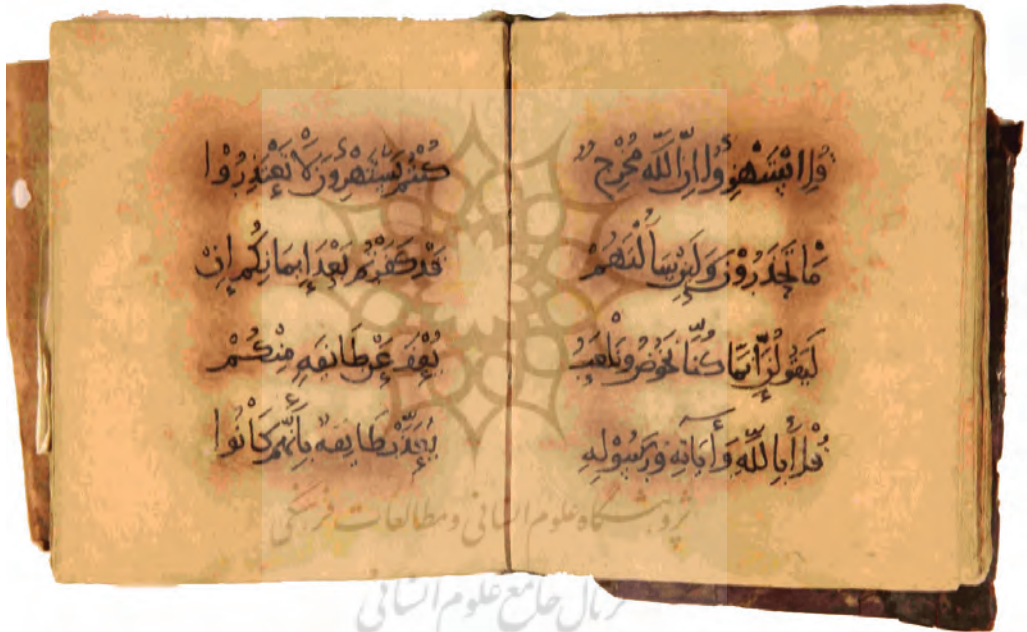 قُلِ اسْتَهْزِؤُا اِنَّ اللَّهَ مُخْرِجٌ
مَّا تَحْذَرُوْنَ وَلَئِنْ سَأَلْتَهُمْ
لَيَقُولُنَّ إِنَّمَا كُنَّا نَخُوْضُ وَنَلْعَبُ
قُلْ أَبِاللَّهِ وَأٰيَاتِهِ وَرَسُوْلِهِ
كُنْتُمْ تَسْتَهْزِءُوْنَ لَا تَعْتَذِرُوْا
قَدْ كَفَرْتُمْ بَعْدَ إِيمَانِكُمْ إِنْ
يُعْفَ عَنْ طَايِفَةٍ مِنْكُمْ
يُعَذَّبْ طَايِفَةٌ بِأَنَّهُمْ كَانُوا
پژوهشگاه علوم انسانی و مطالعات فرهنگی
پرتال جامع علوم انسانی